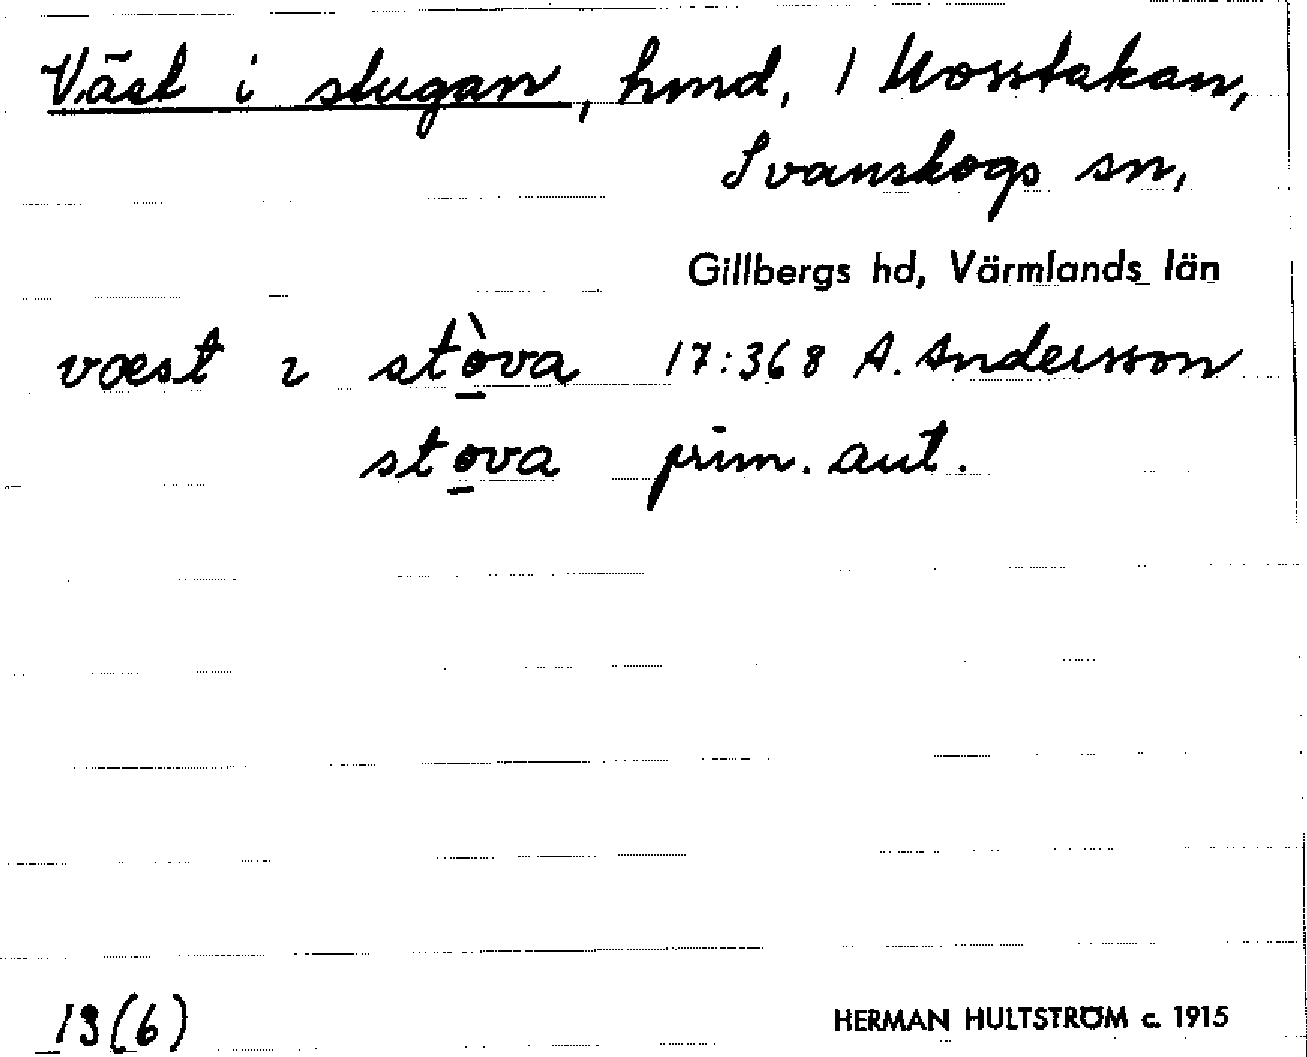 Väst i stugan, hmd, 1 Mosstakan,
Svanskogs sn,
Gillbergs hd, Värmlands län
væst ɩ stò̲va 17:368 A. Andersson
sto̲va prim. aut.
13(6)
HERMAN HULTSTRÖM c. 1915